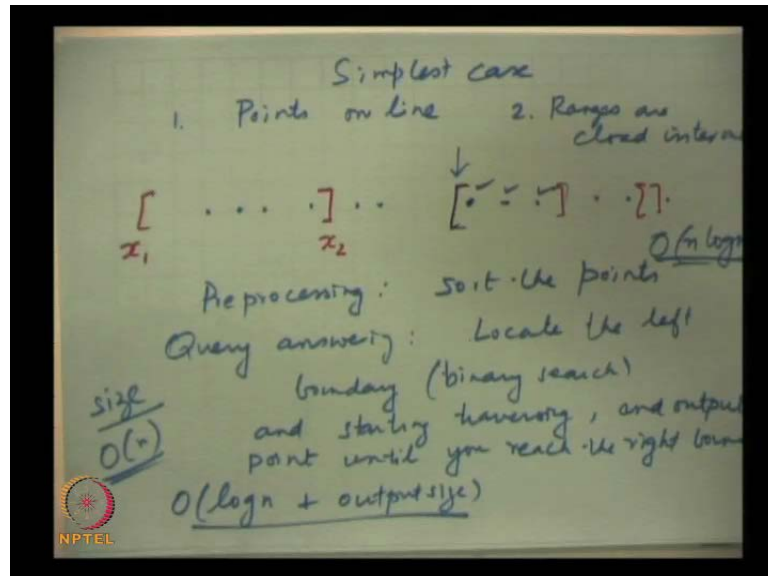 Simplest case
1. Points on line 2. Ranges are
closed interva
[ . . . . ] . . [ . . . ] . . [ ] .
x₁ x₂
O(n logn
Preprocessing: sort the points
Query answering: Locate the left
boundary (binary search)
size
O(n)
and starting traversing, and output
point until you reach the right boun
O(logn + output size)
NPTEL